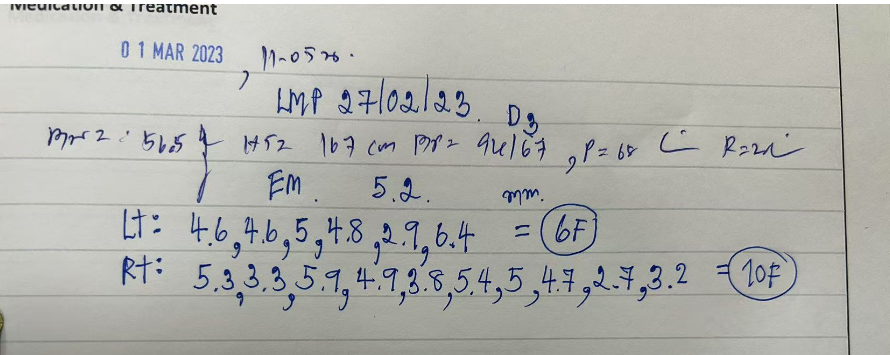 Medication & Treatment
01 MAR 2023, 11-05 น.
LMP 27/02/23. D3
56.5 } HS2 167 cm BP = 94/67, P = 68 R = 20
EM. 5.2. mm.
Lt: 4.6, 4.6, 5, 4.8, 2.9, 6.4 = 6F
Rt: 5.3, 3.3, 5.9, 4.9, 3.8, 5.4, 5, 4.7, 2.7, 3.2 = 10F